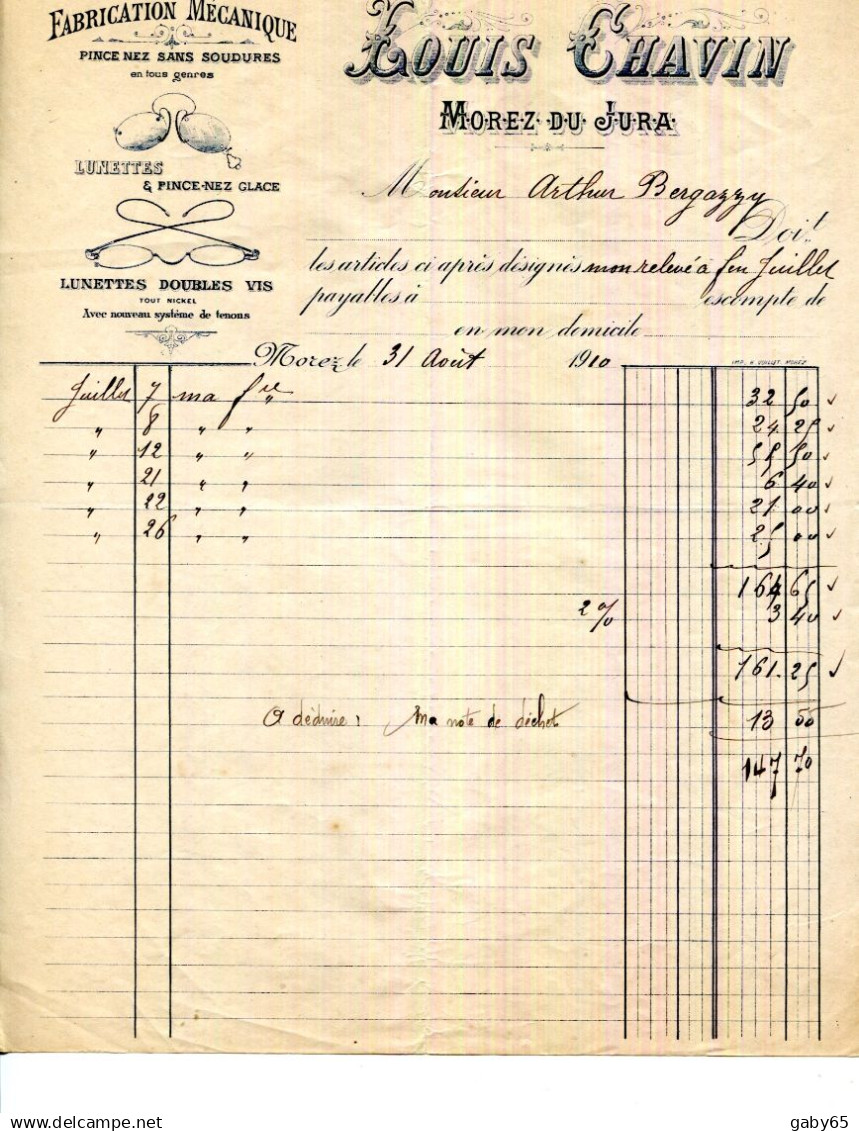 FABRICATION MÉCANIQUE
PINCE NEZ SANS SOUDURES
en tous genres
LUNETTES
& PINCE-NEZ GLACE
LUNETTES DOUBLES VIS
TOUT NICKEL
Avec nouveau système de tenons
LOUIS CHAVIN
MOREZ DU JURA
Monsieur Arthur Bergozzy
Doit
les articles ci après désignés mon relevé à fin Juillet
payables à escompte de
en mon domicile
Morez le 31 Août 1910
Juillet 7 ma fre 32 50
" 8 " " 24 25
" 12 " " 55 50
" 21 " " 6 40
" 22 " " 21 00
" 26 " " 25 00
164 65
2 % 3 40
161.25
A déduire : Ma note de déchet 13 55
147 70
delcampe.net
gaby65